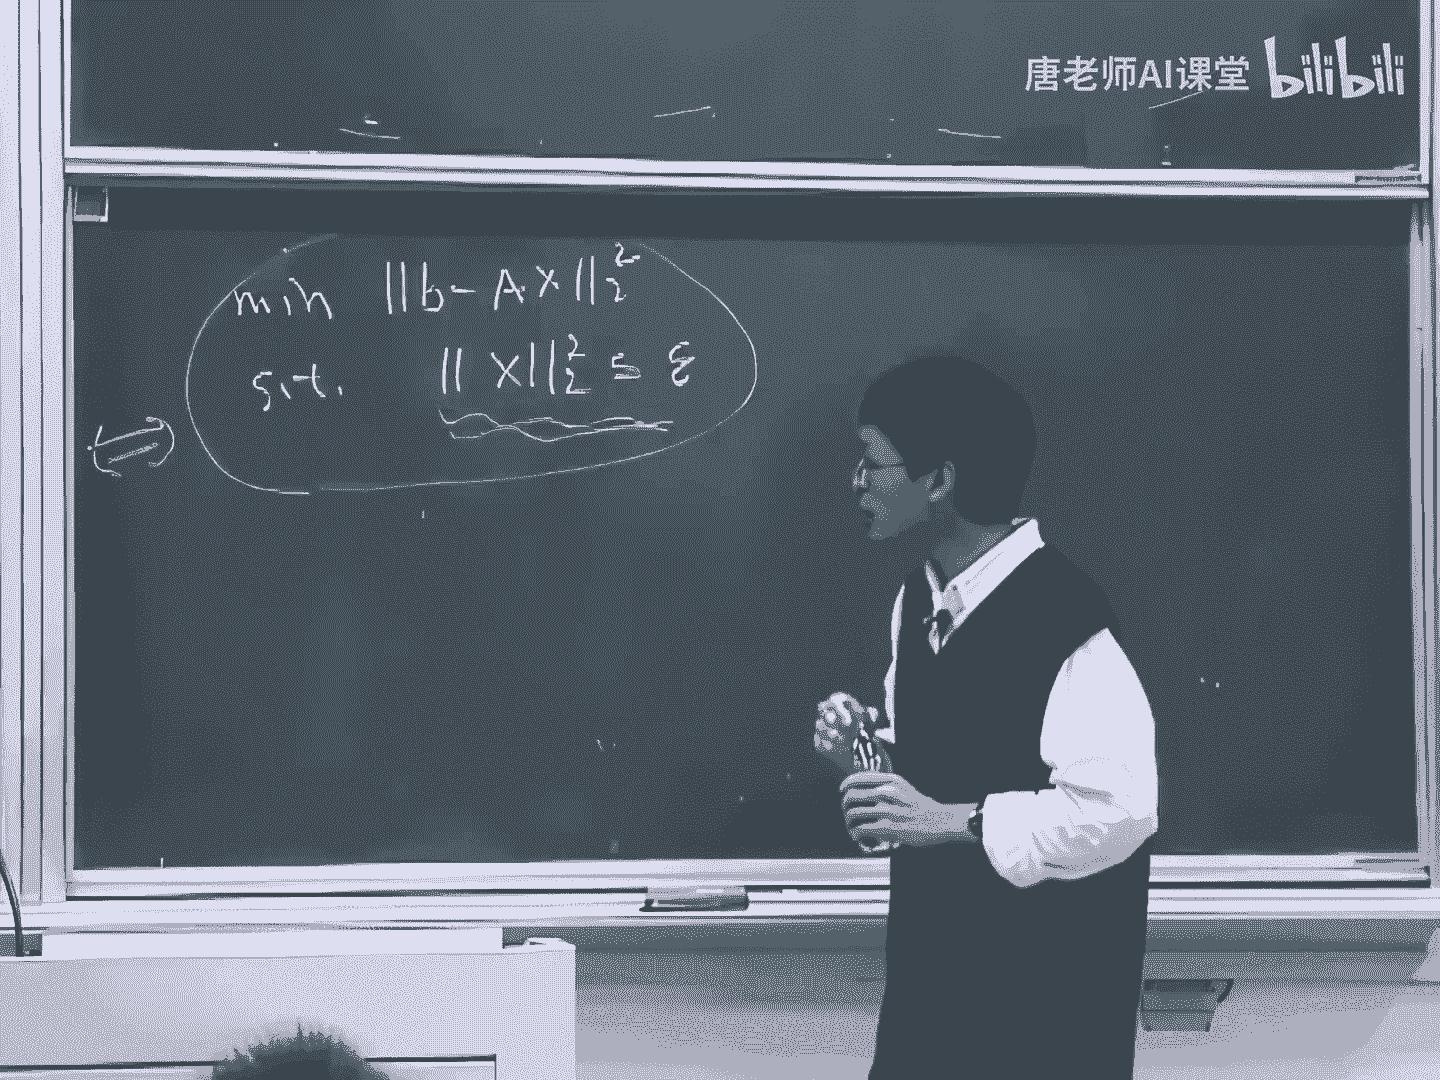 唐老师AI课堂 bilibili
min ||b-Ax||₂²
s.t. ||x||₂² ≤ ε
⟺